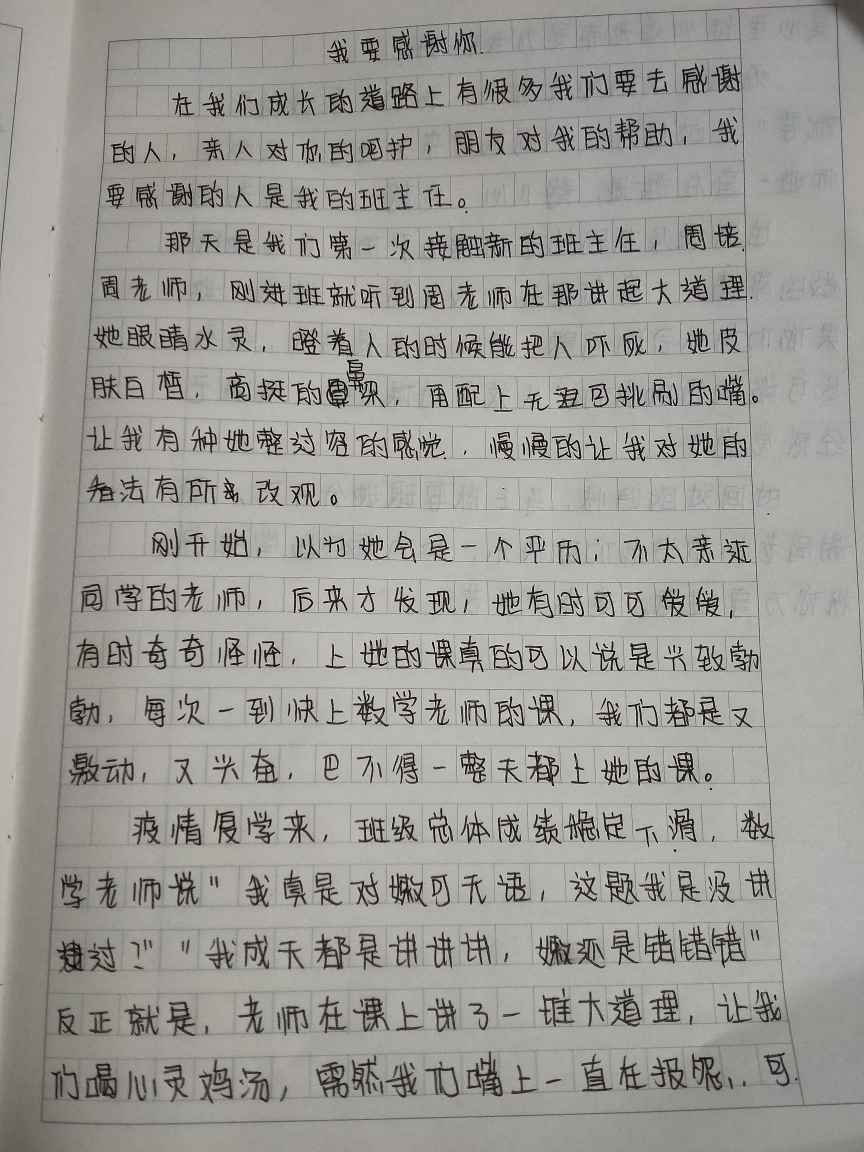 我要感谢你.
在我们成长的道路上有很多我们要去感谢
的人，亲人对你的呵护，朋友对我的帮助，我
要感谢的人是我的班主任。
那天是我们第一次接触新的班主任，周培.
周老师，刚进班就听到周老师在那讲起大道理.
她眼睛水灵，瞪着人的时候能把人吓死，她皮
肤白皙，高挺的鼻梁，再配上无丑可挑剔的嘴。
让我有种她整过容的感觉，慢慢的让我对她的
看法有所改观。
刚开始，以为她会是一个平历；不太亲近
同学的老师，后来才发现，她有时可可爱爱，
有时奇奇怪怪，上她的课真的可以说是兴致勃
勃，每次一到快上数学老师的课，我们都是又
激动，又兴奋，巴不得一整天都上她的课。
疫情复学来，班级总体成绩稳定下滑，数
学老师说"我真是对嫩可无语，这题我是没讲
过？""我成天都是讲讲讲，嫩还是错错错"
反正就是，老师在课上讲了一堆大道理，让我
们喝心灵鸡汤，虽然我们嘴上一直在报怨，可.